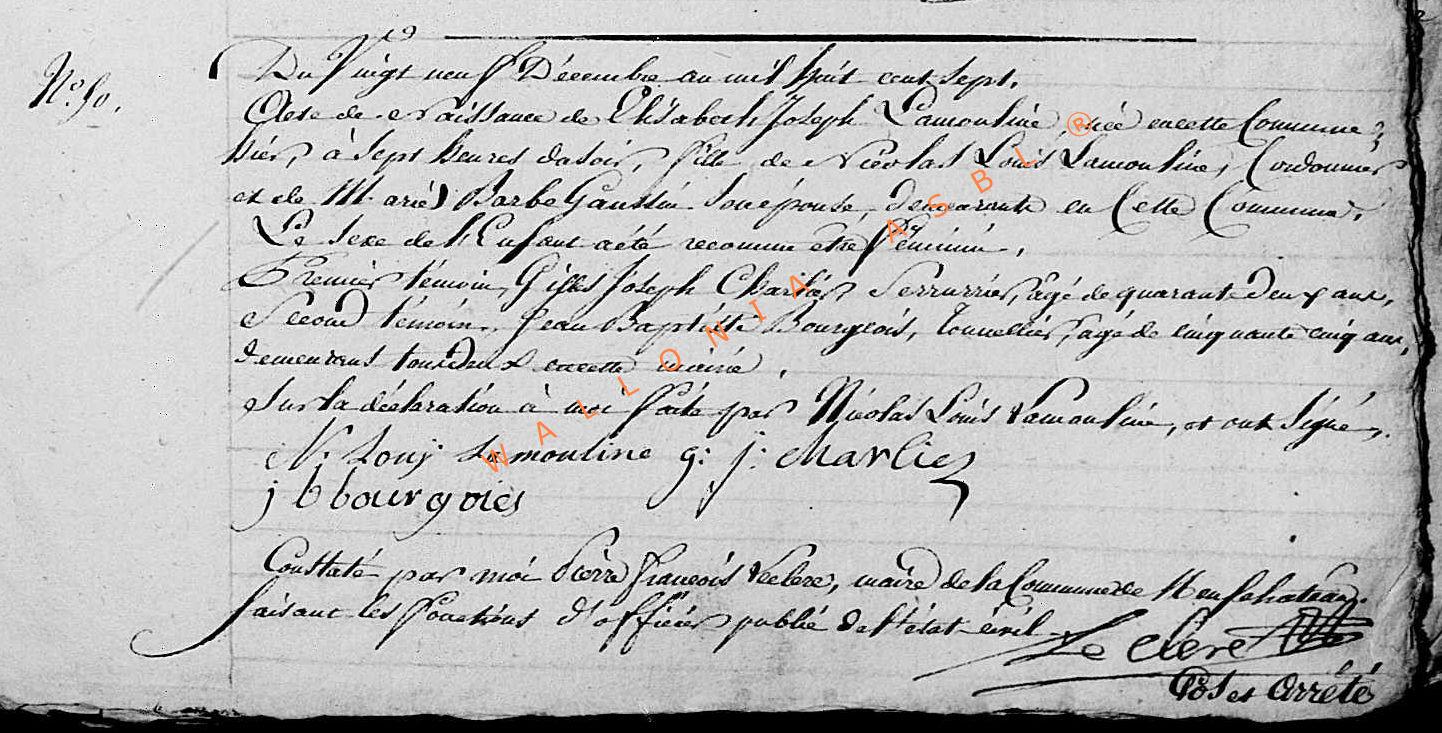 N.º 50.
Du Vingt neuf Décembre an mil huit cent sept.
Acte de Naissance de Elisabeth Joseph Lamouline, née encette Commune
hier, à Sept heures dusoir, fille de Nicolas Louis Lamouline, Cordonnier
et de Marie Barbe Gaussin Son épouse, demeurante en Cette Commune.
Le Sexe de l'Enfant a été reconnu etre féminin.
Premier témoin, Gilles Joseph Charlier Serrurier, agé de quarante deux ans,
Second témoin, Jean Baptiste Bourgeois, tonnellier, agé de Cinquante cinq ans,
demeurans tousdeux encette mairie.
Sur la déclaration à moi faite par Nicolas Louis Lamouline, et ont Signé.
N: Louÿ La mouline g: j: Charlie
j b bourgoies
Constaté par moi Pierre François Leclere, maire de la Commune de Neufchateau.
faisant les fonctions d'officier public de l'état civil
Le clere
Clos et Arrêté
WALLONIA ASBL ®